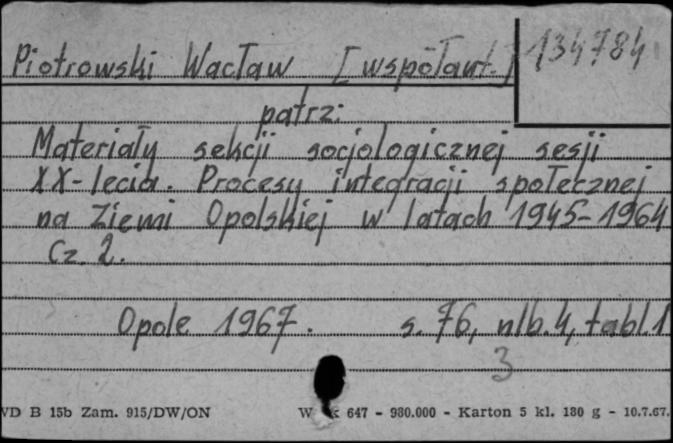 Piotrowski Wacław [współaut.] 134784
patrz:
Materiały sekcji socjologicznej sesji
XX-lecia. Procesy integracji społecznej
na Ziemi Opolskiej w latach 1945-1964
Cz. 2.
Opole 1967. s. 76, nlb. 4, tabl. 1
3
VD B 15b Zam. 915/DW/ON 647 - 980.000 - Karton 5 kl. 180 g - 10.7.67.